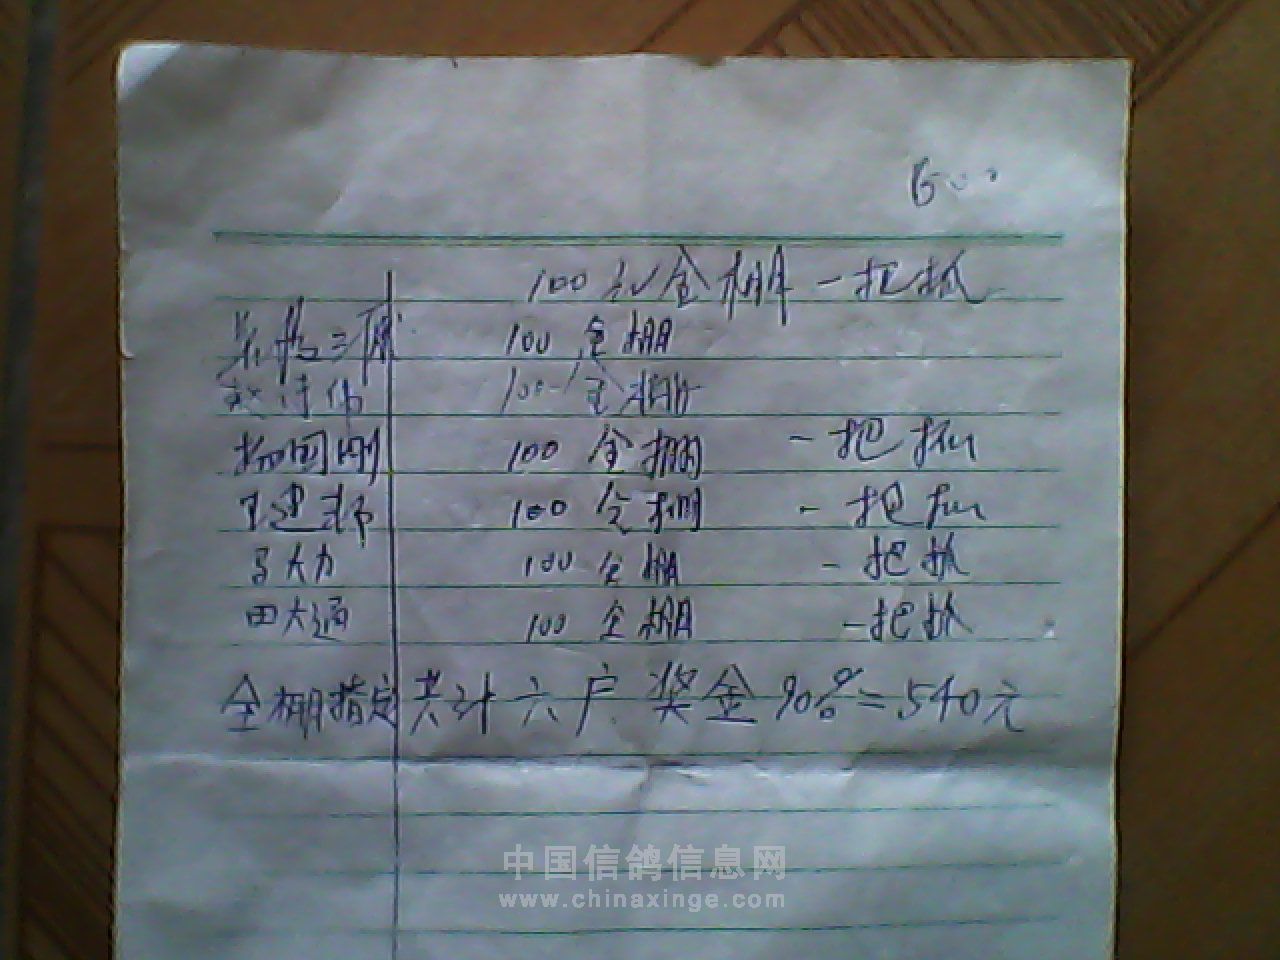 600
100元全棚 一把抓
100 全棚
100 全棚
杨国刚 100 全棚 一把抓
王建邦 100 全棚 一把抓
马大力 100 全棚 一把抓
田大通 100 全棚 一把抓
全棚指定共计六户 奖金90%=540元
中国信鸽信息网
www.chinaxinge.com